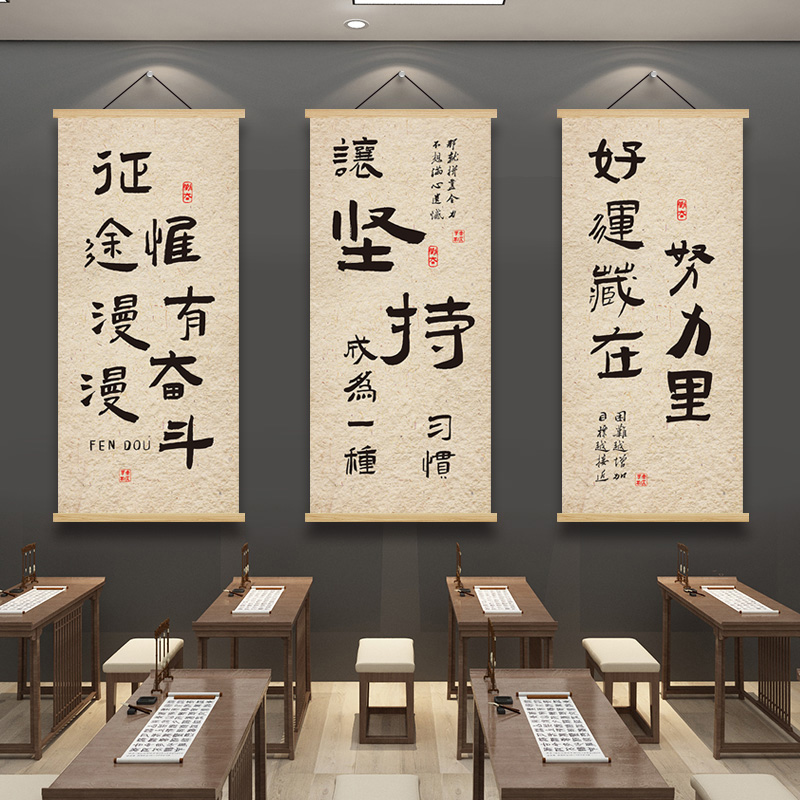 征途漫漫
惟有奋斗
FEN DOU
讓
坚
持
成為一種
习慣
不想滿心遺憾
那就拼盡全力
好運藏在
努力里
困難越增加
目標越接近